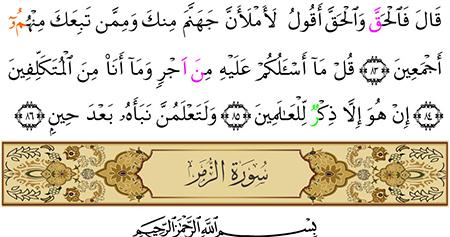 قَالَ فَالْحَقَّ وَالْحَقَّ أَقُولُ لَأَمْلَأَنَّ جَهَنَّمَ مِنكَ وَمِمَّن تَبِعَكَ مِنْهُمُۥٓ
أَجْمَعِينَ ﴿٨٣﴾ قُلْ مَآ أَسْـَٔلُكُمْ عَلَيْهِ مِنَ اَجْرٍ وَمَآ أَنَا۠ مِنَ الْمُتَكَلِّفِينَ
﴿٨٤﴾ إِنْ هُوَ إِلَّا ذِكْرٌ لِّلْعَٰلَمِينَ ﴿٨٥﴾ وَلَتَعْلَمُنَّ نَبَأَهُۥ بَعْدَ حِينٍ ﴿٨٦﴾
سُورَةُ الزُّمَرِ
بِسْمِ اللَّهِ الرَّحْمَٰنِ الرَّحِيمِ